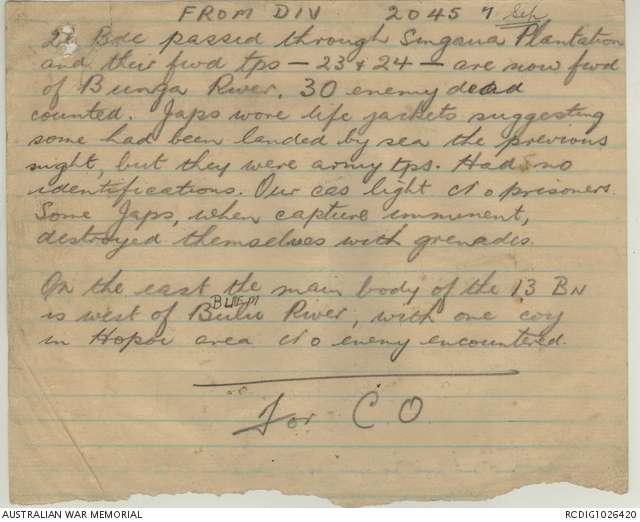 FROM DIV 2045 7 Sep
Bde passed through Singaua Plantation
and their fwd tps - 23 & 24 - are now fwd
of Bunga River. 30 enemy dead
counted. Japs wore life jackets suggesting
some had been landed by sea the previous
night, but they were army tps. Had no
identifications. Our cas light No prisoners.
Some Japs, when capture imminent,
destroyed themselves with grenades.
On the east the main body of the 13 BN
is west of River, with one coy
in Hopoi area No enemy encountered.
For CO
AUSTRALIAN WAR MEMORIAL
RCDIG1026420